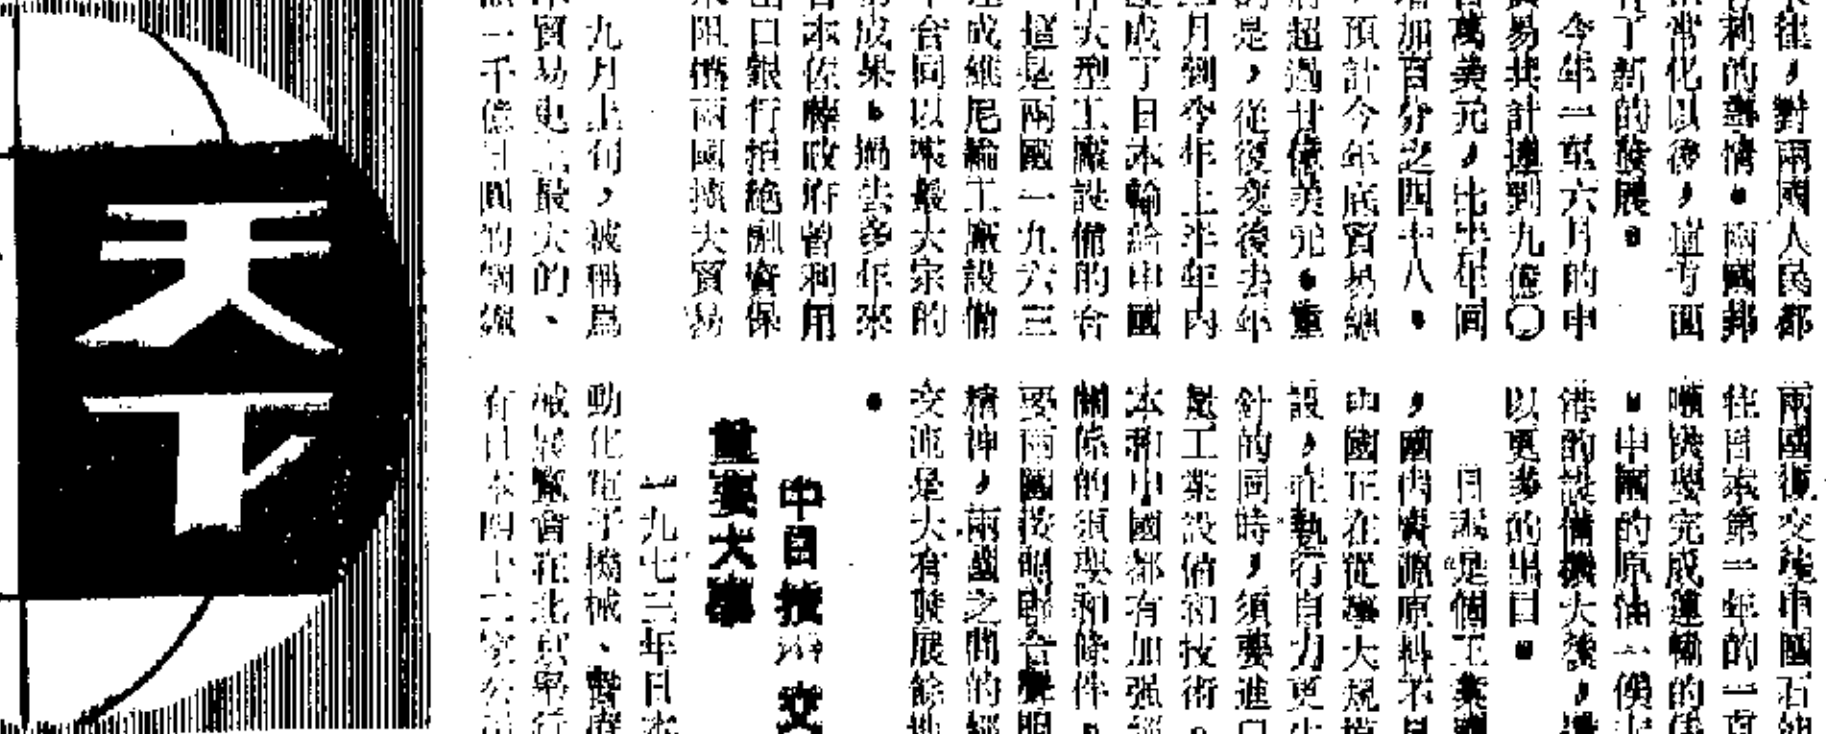 往，對兩國人民都
利的事情。兩國邦
常化以後，這方面
了新的發展。
今年一至六月的中
易共計達到九億〇
萬美元，比去年同
加百分之四十八。
預計今年底貿易總
超過廿億美元。重
是，從復交後去年
月到今年上半年內
成了日本輸給中國
大型工廠設備的合
這是兩國一九六三
成維尼綸工廠設備
合同以來最大宗的
成果。過去多年來
本佐藤政府曾利用
口銀行拒絕融資保
阻撓兩國擴大貿易
九月上旬，被稱爲
貿易史上最大的、
一千億日圓的鋼鐵
兩國復交後中國石油
往日本第一年的一百
噸快要完成運輸的任
。中國的原油一俟
港的設備擴大後，還
以更多的出口。
日本是個工業國
，國內資源原料不足
中國正在從事大規模
設，在執行自力更生
針的同時，須要進口
量工業設備和技術。
本和中國都有加强經
關係的須要和條件。
要兩國按照聯合聲明
精神，兩國之間的經
交流是大有發展餘地
。
中日技術交
重要大事
一九七三年日本
動化電子機械、醫療
械展覽會在北京舉行
有日本四十二家公司
天下